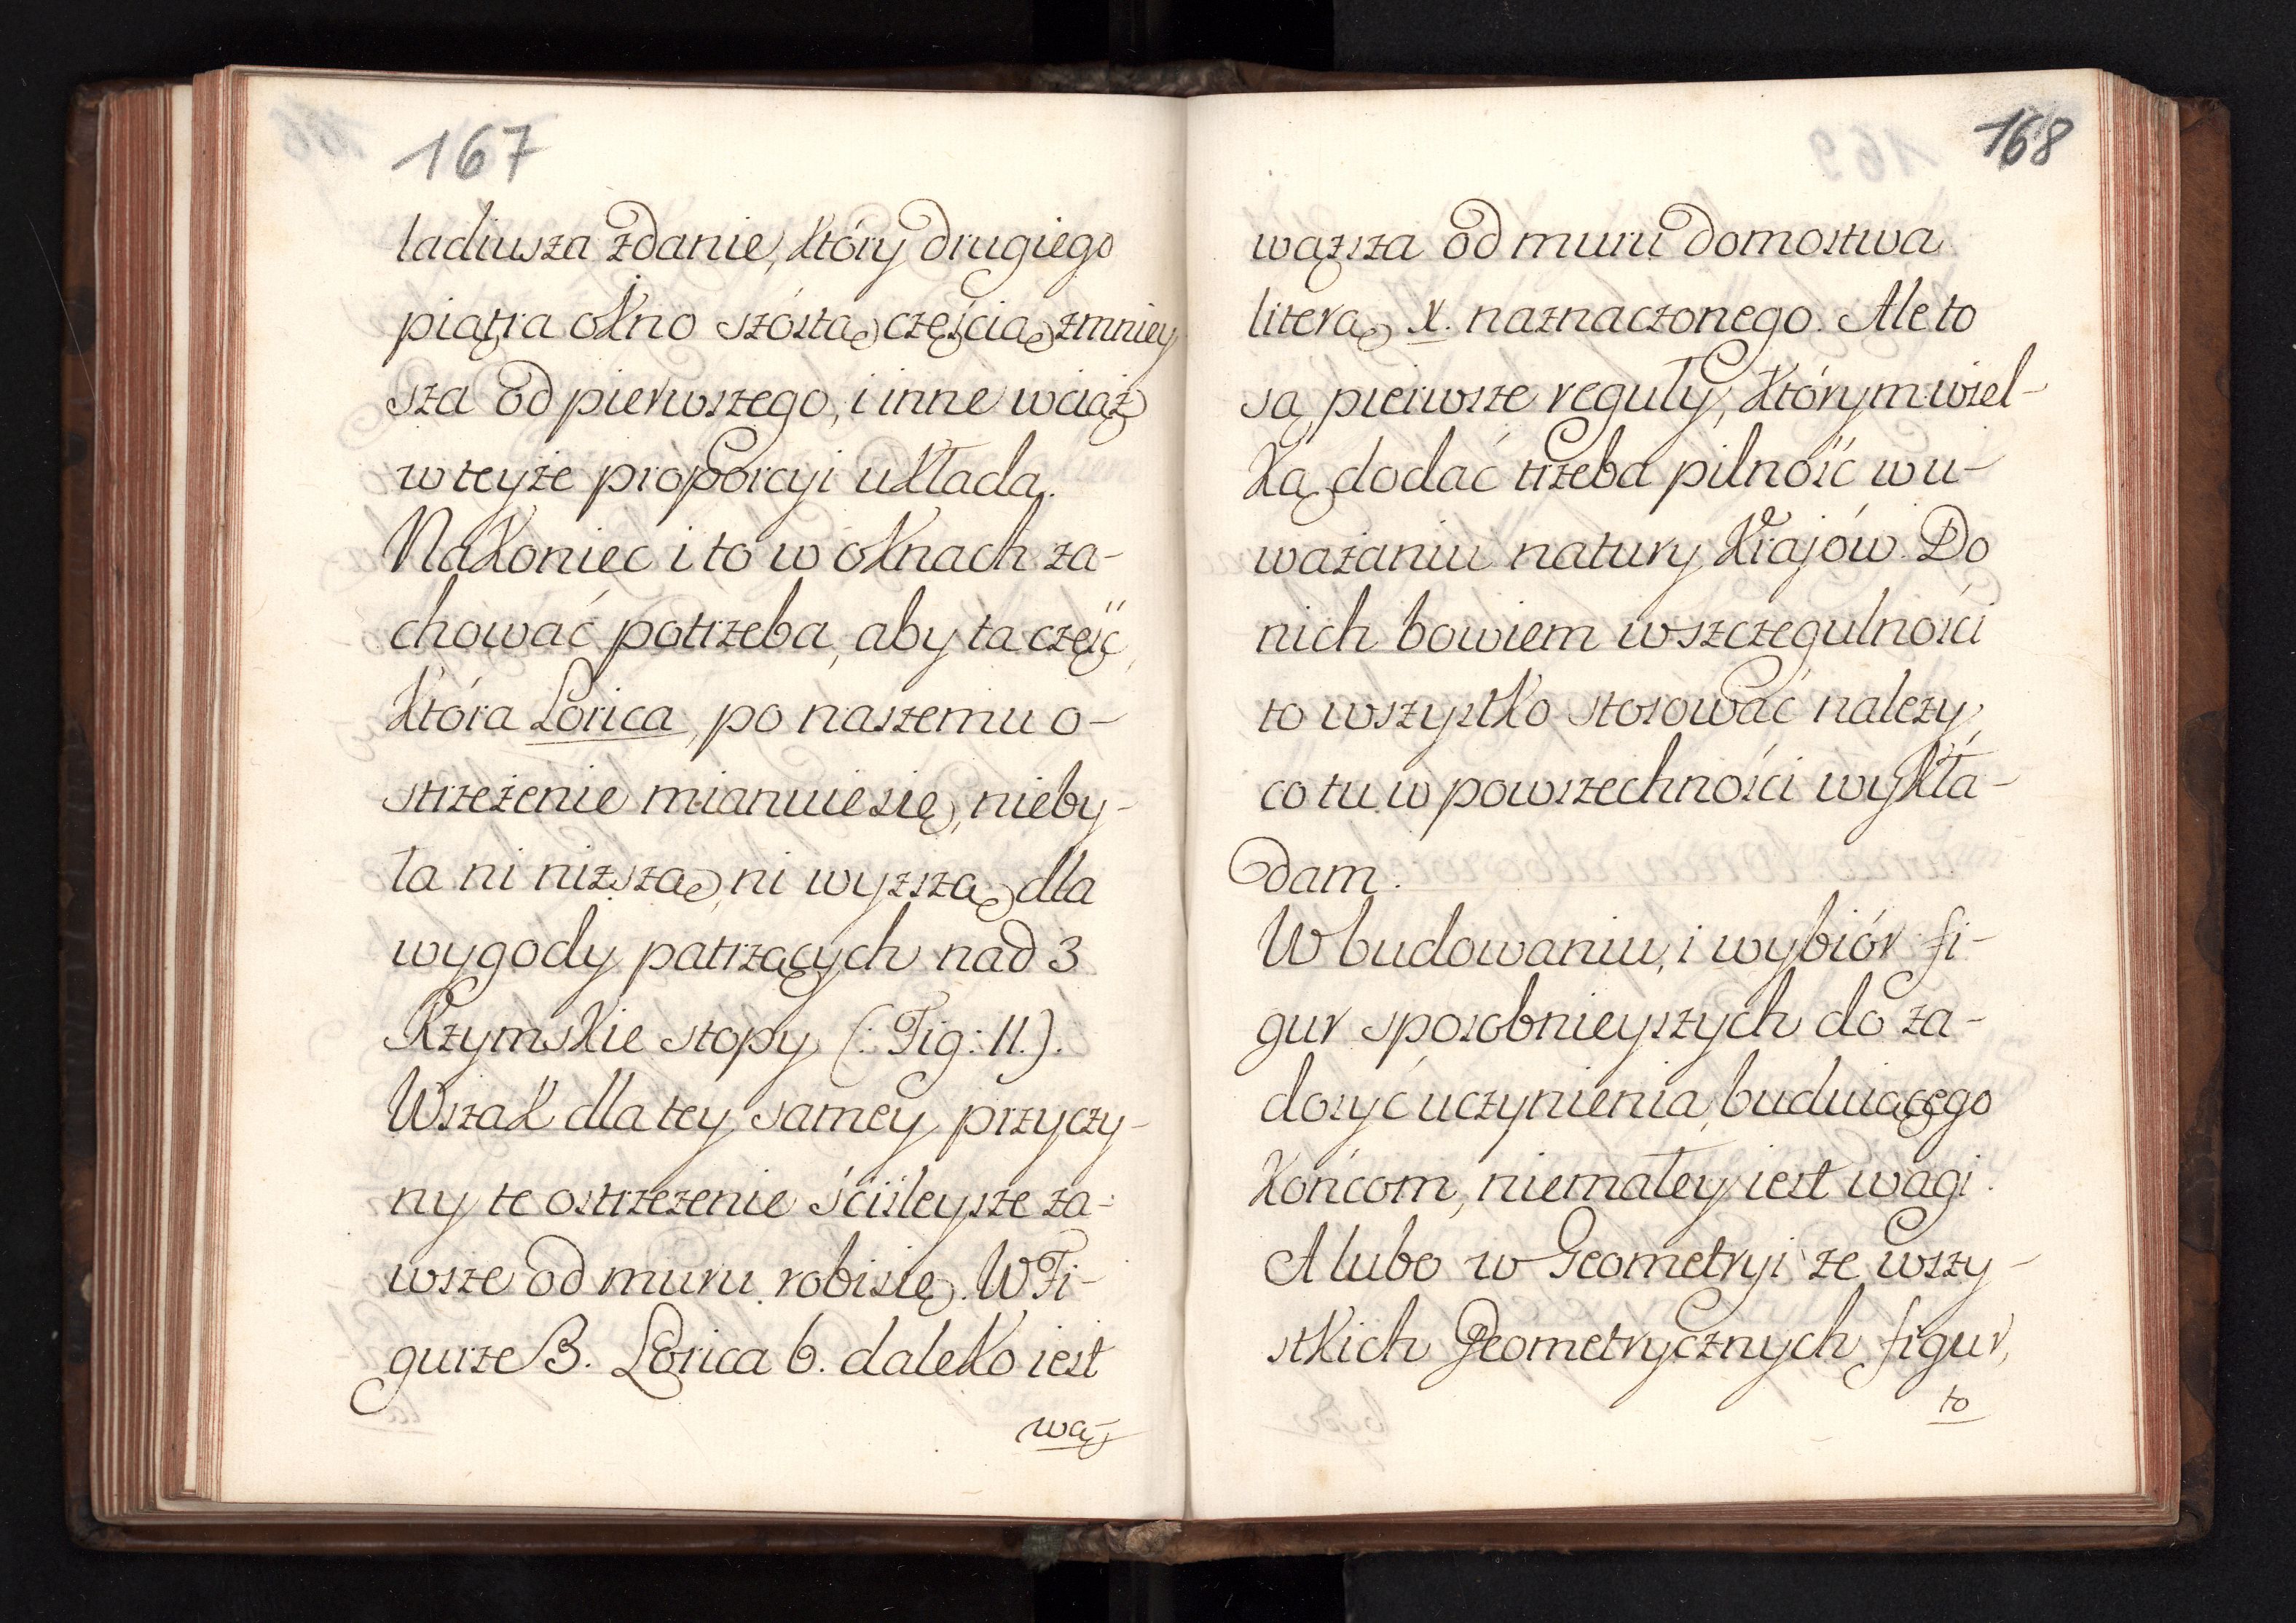 167
ladiusza zdanie, który drugiego
piątra okno szóstą częścią zmniey
sza od pierwszego, i inne wciąż
w teyże proporcyi układa.
Nakoniec i to w oknach za-
chować potrzeba, aby ta część,
która Lorica, po naszemu o-
strzeżenie mianuie się, nieby-
ła ni niższą, ni wyższą dla
wygody patrzących nad 3
Rzymskie stopy (: Fig: 11.).
Wszak dla tey samey przyczy-
ny te ostrzeżenie ściśleysze za-
wsze od muru robi się. W Fi-
gurze B. Lorica b. daleko iest
wą-
168
wązsza od muru domostwa
literą x. naznaczonego. Ale to
są pierwsze reguły, którym wiel-
ką dodać trzeba pilność w u-
ważaniu natury Krajów. Do
nich bowiem w szczegulności
to wszystko stosować należy,
co tu w powszechności wykła-
dam.
W budowaniu, i wybiór fi-
gur sposobnieyszych do za-
dosyć uczynienia buduiącego
końcom, niemałey iest wagi.
A lubo w Geometryi ze wszy-
stkich Geometrycznych figur,
to